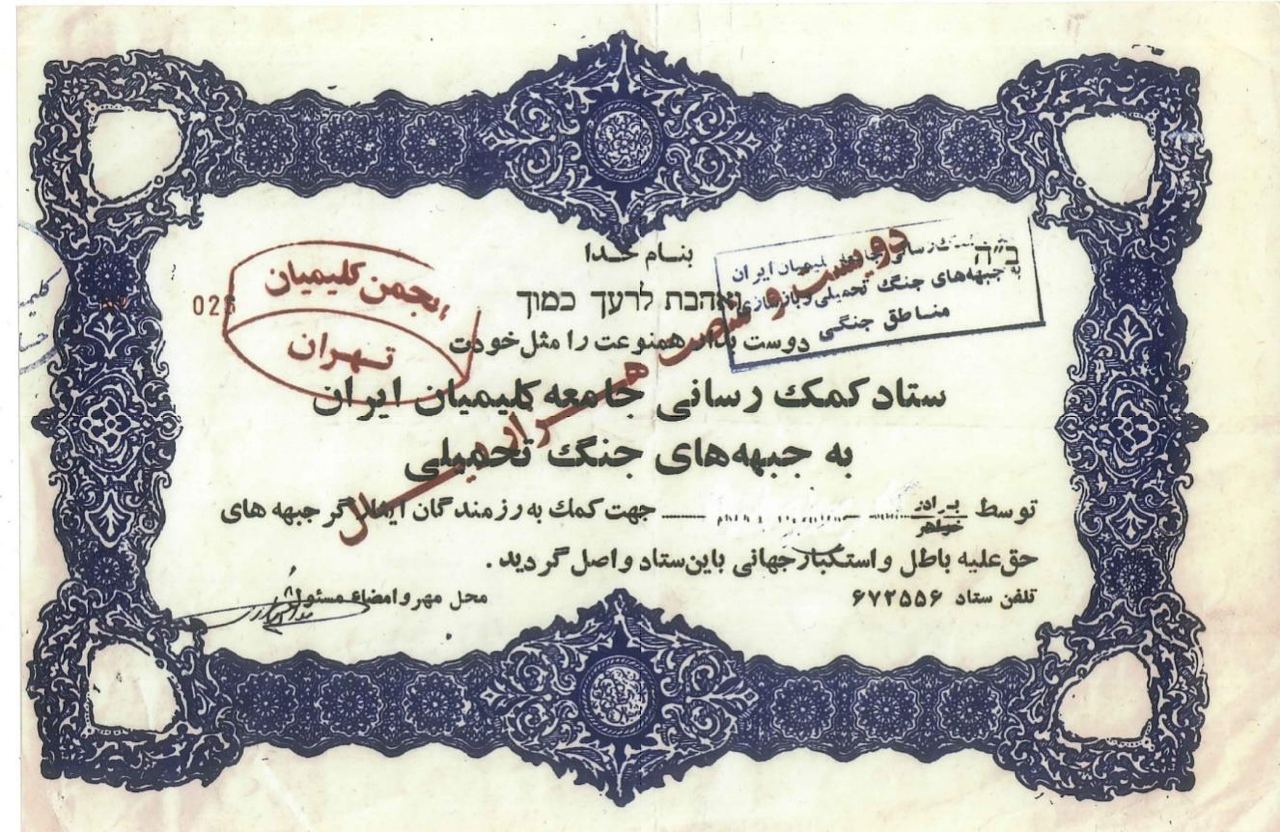 ב״ה
بنام خدا
ואהבת לרעך כמוך
دوست بدار همنوعت را مثل خودت
ستاد کمک رسانی جامعه کلیمیان ایران
به جبهه‌های جنگ تحمیلی
توسط برادر خواهر جهت کمک به رزمندگان ایثارگر جبهه های
حق علیه باطل و استکبار جهانی باین ستاد واصل گردید .
تلفن ستاد ۶۷۲۵۵۶
محل مهر و امضاء مسئول
انجمن کلیمیان
تهران
026
رسانی جامعه کلیمیان ایران
به جبهه‌های جنگ تحمیلی و بازسازی
مناطق جنگی
دویست و شصت هزار ریال